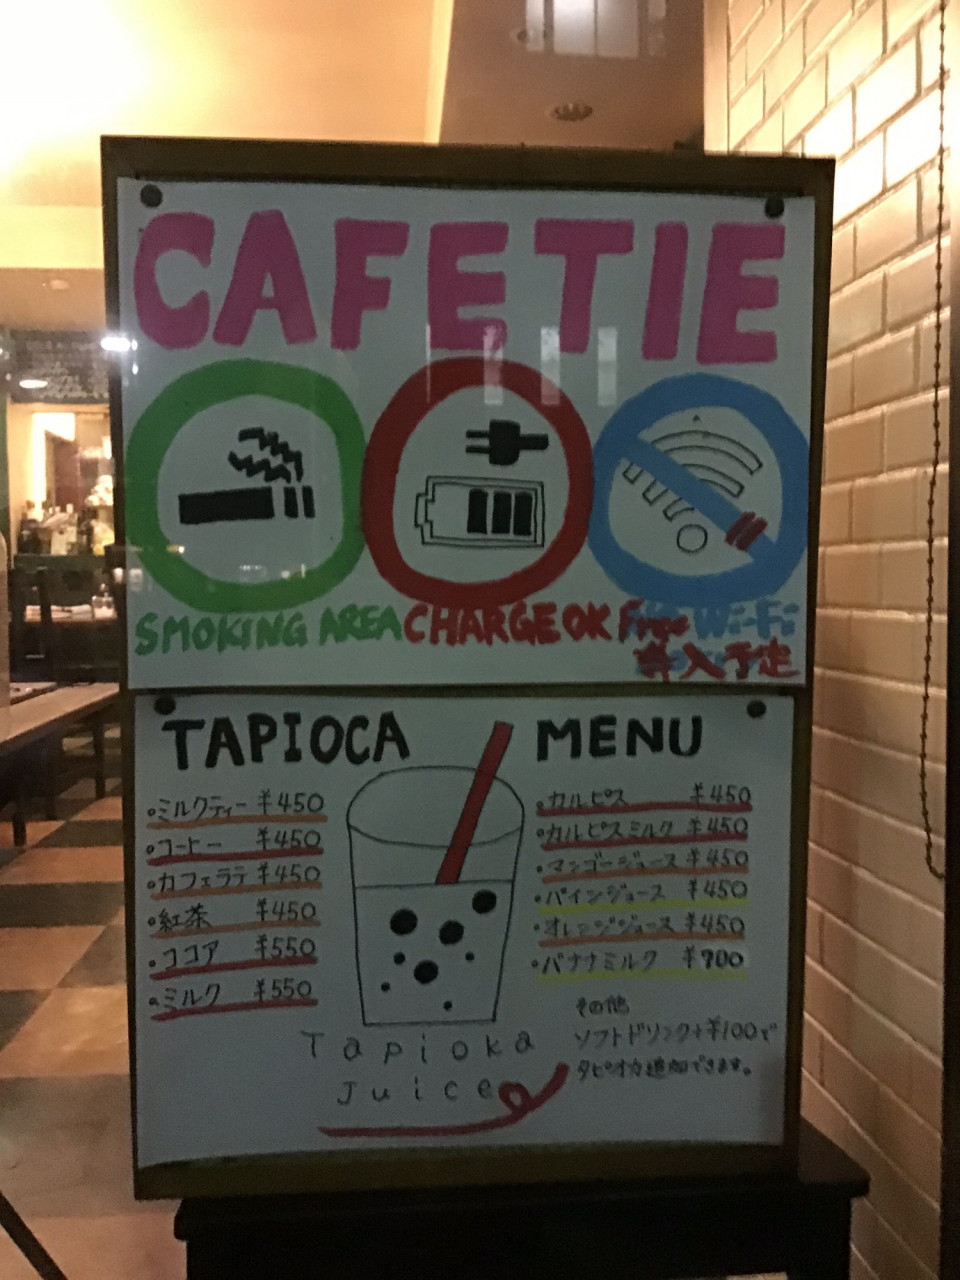 CAFETIE
SMOKING AREA
CHARGE OK
Free Wi-Fi
導入予定
TAPIOCA MENU
・ミルクティー ¥450
・コーヒー ¥450
・カフェラテ ¥450
・紅茶 ¥450
・ココア ¥550
・ミルク ¥550
・カルピス ¥450
・カルピスミルク ¥450
・マンゴージュース ¥450
・パインジュース ¥450
・オレンジジュース ¥450
・バナナミルク ¥700
その他
ソフトドリンク+¥100で
タピオカ追加できます。
Tapioka
Juice